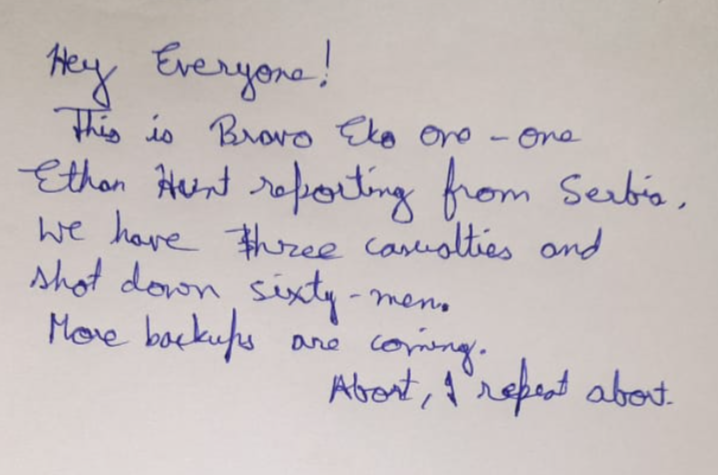 Hey Everyone!
This is Bravo Eko one - one
Ethan Hunt reporting from Serbia.
We have three casualties and
shot down sixty-men.
More backups are coming.
Abort, I repeat abort.